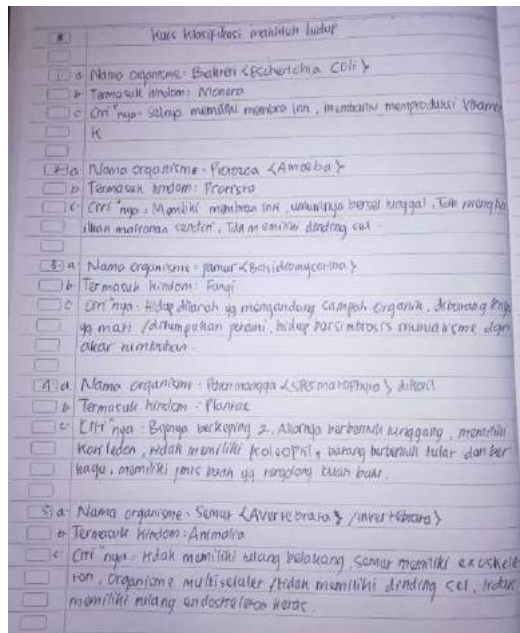 Kuis klasifikasi mahluk hidup
1 a Nama organisme: Bakteri <Escherichia Coli>
b Termasuk kindom: Monera
c Ciri"nya: Selnya memiliki membra inti, membantu memproduksi Vitamin
K
2 a Nama organisme: Protozoa <Amoeba>
b Termasuk kindom: Protista
c Ciri"nya: Memiliki membran inti, umumnya bersel tunggal, Tdk mengha
silkan makanan sendiri, Tdk memiliki dinding sel.
3. a Nama organisme: jamur <Basidiomycotina>
b Termasuk kindom: Fungi
c Ciri"nya: Hidup ditanah yg mengandung sampah organik, dibatang kayu
yg mati /ditumpukan jerami, hidup barsimbiosis mutualisme dgn
akar tumbuhan.
4 a Nama organisme: Pohon mangga <Spermatophyta> dikotil
b Termasuk kindom: Plantae
c Ciri"nya: Bijinya berkeping 2, Akarnya berbentuk tunggang, memiliki
kotiledon, tidak memiliki koleoptil, batang berbentuk bular dan ber
kayu, memiliki jenis buah yg tergolong buah batu.
5) a. Nama organisme: Semut <Avertebrata> /invertebrata>
b Termasuk kindom: Animalia
c Ciri"nya: tidak memiliki tulang belakang, Semut memiliki exoskele
ton, Organisme multiseluler /tidak memiliki dinding sel, tidak
memiliki tulang endoskeleton keras.